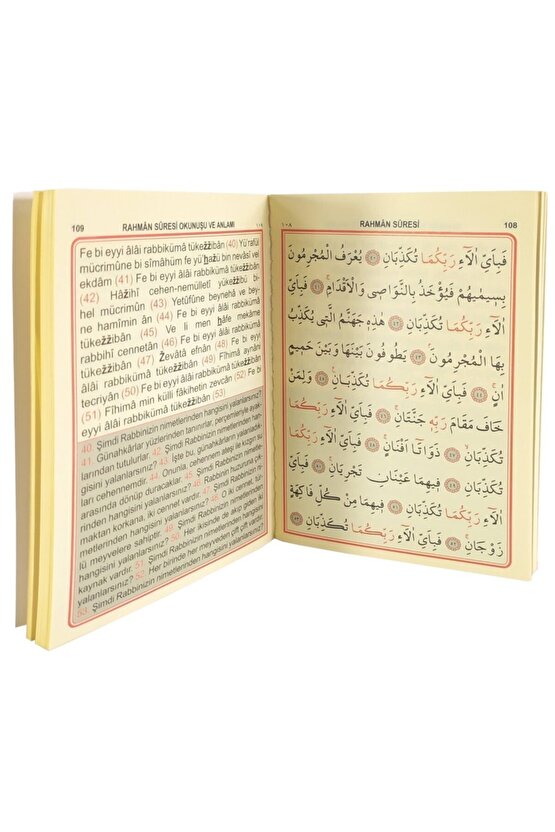 109 RAHMÂN SÛRESİ OKUNUŞU VE ANLAMI ١٠٩
Fe bi eyyi âlâi rabbikümâ tükežžibân (40) Yü'rafül
mücrimûne bi sîmâhüm fe yü'ḫažü bin nevâsî vel
ekdâm (41) Fe bi eyyi âlâi rabbikümâ tükežžibân
(42) Hâžihî cehen-nemülletî yükežžibü bi-
hel mücrimûn (43) Yetûfûne beynehâ ve bey-
ne hamîmin ân (44) Fe bi eyyi âlâi rabbikümâ
tükežžibân (45) Ve li men ḫâfe mekâme
rabbihî cennetân (46) Fe bi eyyi âlâi rabbikümâ
tükežžibân (47) Ževâtâ efnân (48) Fe bi eyyi
âlâi rabbikümâ tükežžibân (49) Fîhimâ aynâni
tecriyân (50) Fe bi eyyi âlâi rabbikümâ tükežžibân
(51) Fîhimâ min külli fâkihetin zevcân (52) Fe bi
eyyi âlâi rabbikümâ tükežžibân (53)
40. Şimdi Rabbinizin nimetlerinden hangisini yalanlarsınız?
41. Günahkârlar yüzlerinden tanınırlar, perçemleriyle ayak-
larından tutulurlar. 42. Şimdi Rabbinizin nimetlerinden han-
gisini yalanlarsınız? 43. İşte bu, günahkârların yalanladık-
ları cehennemdir. 44. Onunla, cehennem ateşi ile kızgın su
arasında dönüp duracaklar. 45. Şimdi Rabbinizin nimetle-
rinden hangisini yalanlarsınız? 46. Rabbin huzuruna dur-
maktan korkana, iki cennet vardır. 47. Şimdi Rabbinizin ni-
metlerinden hangisini yalanlarsınız? 48. O iki cennet, tür-
lü meyvelere sahiptir. 49. Şimdi Rabbinizin nimetlerinden
hangisini yalanlarsınız? 50. Her ikisinde de akıp giden iki
kaynak vardır. 51. Şimdi Rabbinizin nimetlerinden hangisini
yalanlarsınız? 52. Her birinde her meyveden çift çift vardır.
53. Şimdi Rabbinizin nimetlerinden hangisini yalanlarsınız?
١٠٨ RAHMÂN SÛRESİ 108
فَبِاَيِّ اٰلَٓاءِ رَبِّكُمَا تُكَذِّبَانِ ﴿٤٠﴾ يُعْرَفُ الْمُجْرِمُونَ
بِسِيمٰيهُمْ فَيُؤْخَذُ بِالنَّوَاصِي وَالْاَقْدَامِۚ ﴿٤١﴾ فَبِاَيِّ
اٰلَٓاءِ رَبِّكُمَا تُكَذِّبَانِ ﴿٤٢﴾ هٰذِهِ جَهَنَّمُ الَّتِي يُكَذِّبُ
بِهَا الْمُجْرِمُونَۘ ﴿٤٣﴾ يَطُوفُونَ بَيْنَهَا وَبَيْنَ حَمِيمٍ
اٰنٍۚ ﴿٤٤﴾ فَبِاَيِّ اٰلَٓاءِ رَبِّكُمَا تُكَذِّبَانِ۟ ﴿٤٥﴾ وَلِمَنْ
خَافَ مَقَامَ رَبِّهِ جَنَّتَانِۚ ﴿٤٦﴾ فَبِاَيِّ اٰلَٓاءِ رَبِّكُمَا
تُكَذِّبَانِۙ ﴿٤٧﴾ ذَوَاتَٓا اَفْنَانٍۚ ﴿٤٨﴾ فَبِاَيِّ اٰلَٓاءِ رَبِّكُمَا
تُكَذِّبَانِ ﴿٤٩﴾ فِيهِمَا عَيْنَانِ تَجْرِيَانِۚ ﴿٥٠﴾ فَبِاَيِّ
اٰلَٓاءِ رَبِّكُمَا تُكَذِّبَانِ ﴿٥١﴾ فِيهِمَا مِنْ كُلِّ فَاكِهَةٍ
زَوْجَانِۚ ﴿٥٢﴾ فَبِاَيِّ اٰلَٓاءِ رَبِّكُمَا تُكَذِّبَانِ ﴿٥٣﴾